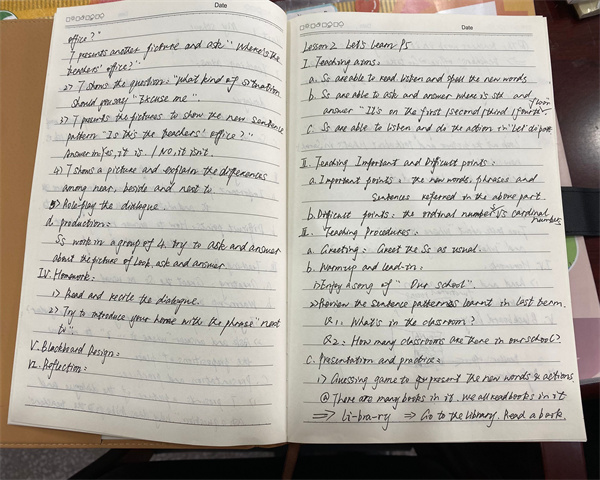 Date
office?"
T presents another picture and ask "Where's the
teachers' office?"
2) T shows the question: "What kind of situation
should you say "Excuse me".
3) T presents the pictures to show the new sentence
pattern "Is this the teachers' office?"
Answer in Yes, it is. / No, it isn't.
4) T shows a picture and explain the differences
among near, beside and next to
5) Roleplay the dialogue.
d. production:
Ss work in a group of 4. try to ask and answer
about the picture of Look, ask and answer.
IV. Homework:
1) Read and recite the dialogue.
2) Try to introduce your home with the phrase "next
to".
V. Blackboard Design:
VI. Reflection:
Date
Lesson 2 Let's learn P5
I. Teaching aims:
a. Ss are able to read listen and spell the new words
b. Ss are able to ask and answer where is sth and
answer "It's on the first/second/third/fourth floor".
c. Ss are able to listen and do the action in "Let's do" part
II. Teaching Important and Difficult points:
a. Important points: the new words, phrases and
sentences referred in the above part.
b. Difficult points: the ordinal numbers VS cardinal
numbers
III. Teaching Procedures:
a. Greeting: Greet the Ss as usual.
b. Warm-up and lead-in:
1) Enjoy a song of "Our school".
2) Review the sentence patterns learnt in last term.
Q1: What's in the classroom?
Q2: How many classrooms are there in our school?
c. Presentation and practice:
1) Guessing game to present the new words & actions
@ There are many books in it. We all read books in it
⇒ Li-bra-ry ⇒ Go to the library. Read a book.